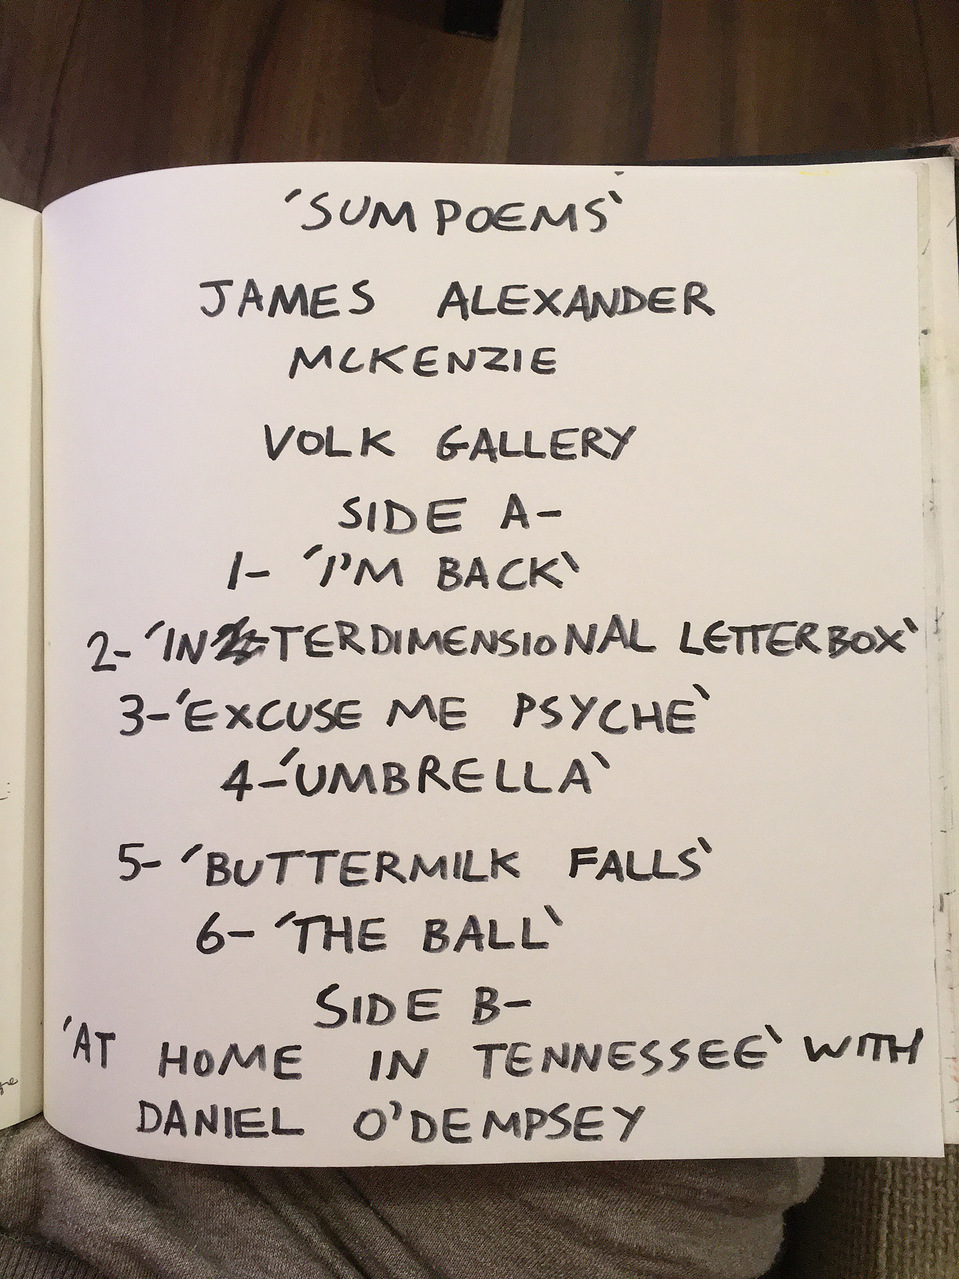 'SUM POEMS'
JAMES ALEXANDER
MCKENZIE
VOLK GALLERY
SIDE A-
1- 'I'M BACK'
2- 'INTERDIMENSIONAL LETTERBOX'
3- 'EXCUSE ME PSYCHE'
4- 'UMBRELLA'
5- 'BUTTERMILK FALLS'
6- 'THE BALL'
SIDE B-
'AT HOME IN TENNESSEE' WITH
DANIEL O'DEMPSEY